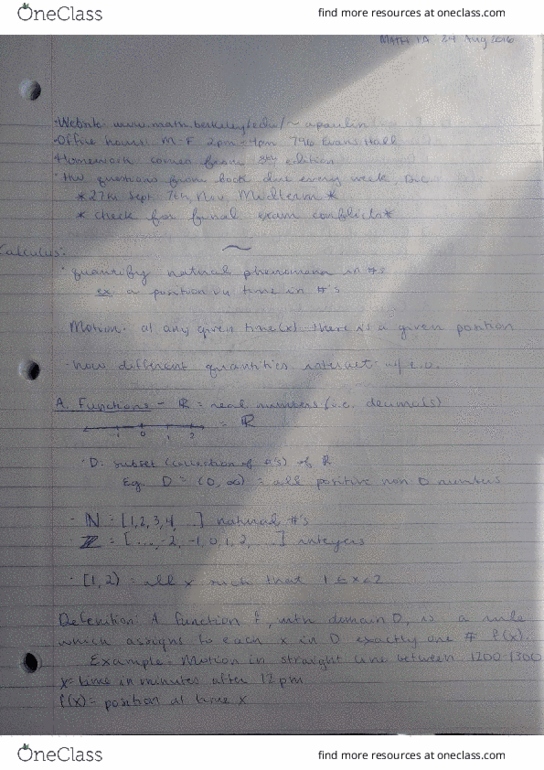 OneClass find more resources at oneclass.com
MATH 1A 24 Aug 2016
-Website: www.math.berkeley.edu/~apaulin
-Office hours: M-F 2pm-4pm 796 Evans Hall
-Homework comes from 8th edition
-HW questions from book due every week,
*27th Sept. 7th, Nov. Midterm*
*check for final exam conflicts*
Calculus:
quantify natural phenomena in #s
ex: a position vs time in #'s
Motion - at any given time (x) there is a given position
- how different quantities interact w/ e.o.
A. Functions - ℝ = real numbers (i.e. decimals)
-1 0 1 2 = ℝ
D: subset (collection of #'s) of ℝ
Eg. D = (0, ∞) = all positive non 0 numbers
- ℕ = [1,2,3,4, ...] natural #'s
ℤ = [..., -2, -1, 0, 1, 2, ...] integers
[1, 2) = all x such that 1 ≤ x < 2
Definition: A function f, with domain D, is a rule
which assigns to each x in D exactly one # f(x).
Example: Motion in straight line between 1200-1300
x = time in minutes after 12 pm
f(x) = position at time x
OneClass find more resources at oneclass.com